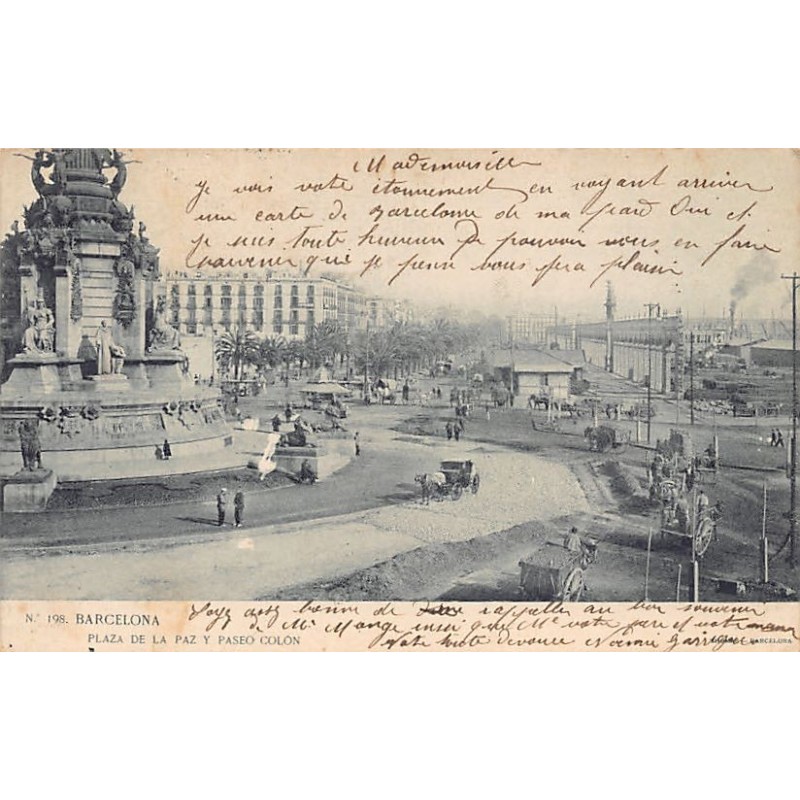 Mademoiselle
Je vois votre étonnement en voyant arriver
une carte de Barcelone de ma part Oui et
je suis toute heureuse de pouvoir vous en faire
parvenir que je pense vous fera plaisir
N.° 198. BARCELONA
PLAZA DE LA PAZ Y PASEO COLÓN
Soyez assez bonne de me rappeller au bon souvenir
de Mr Monge ainsi que Mr votre père et votre maman
Votre toute dévouée Noémie Garrigue
BARCELONA